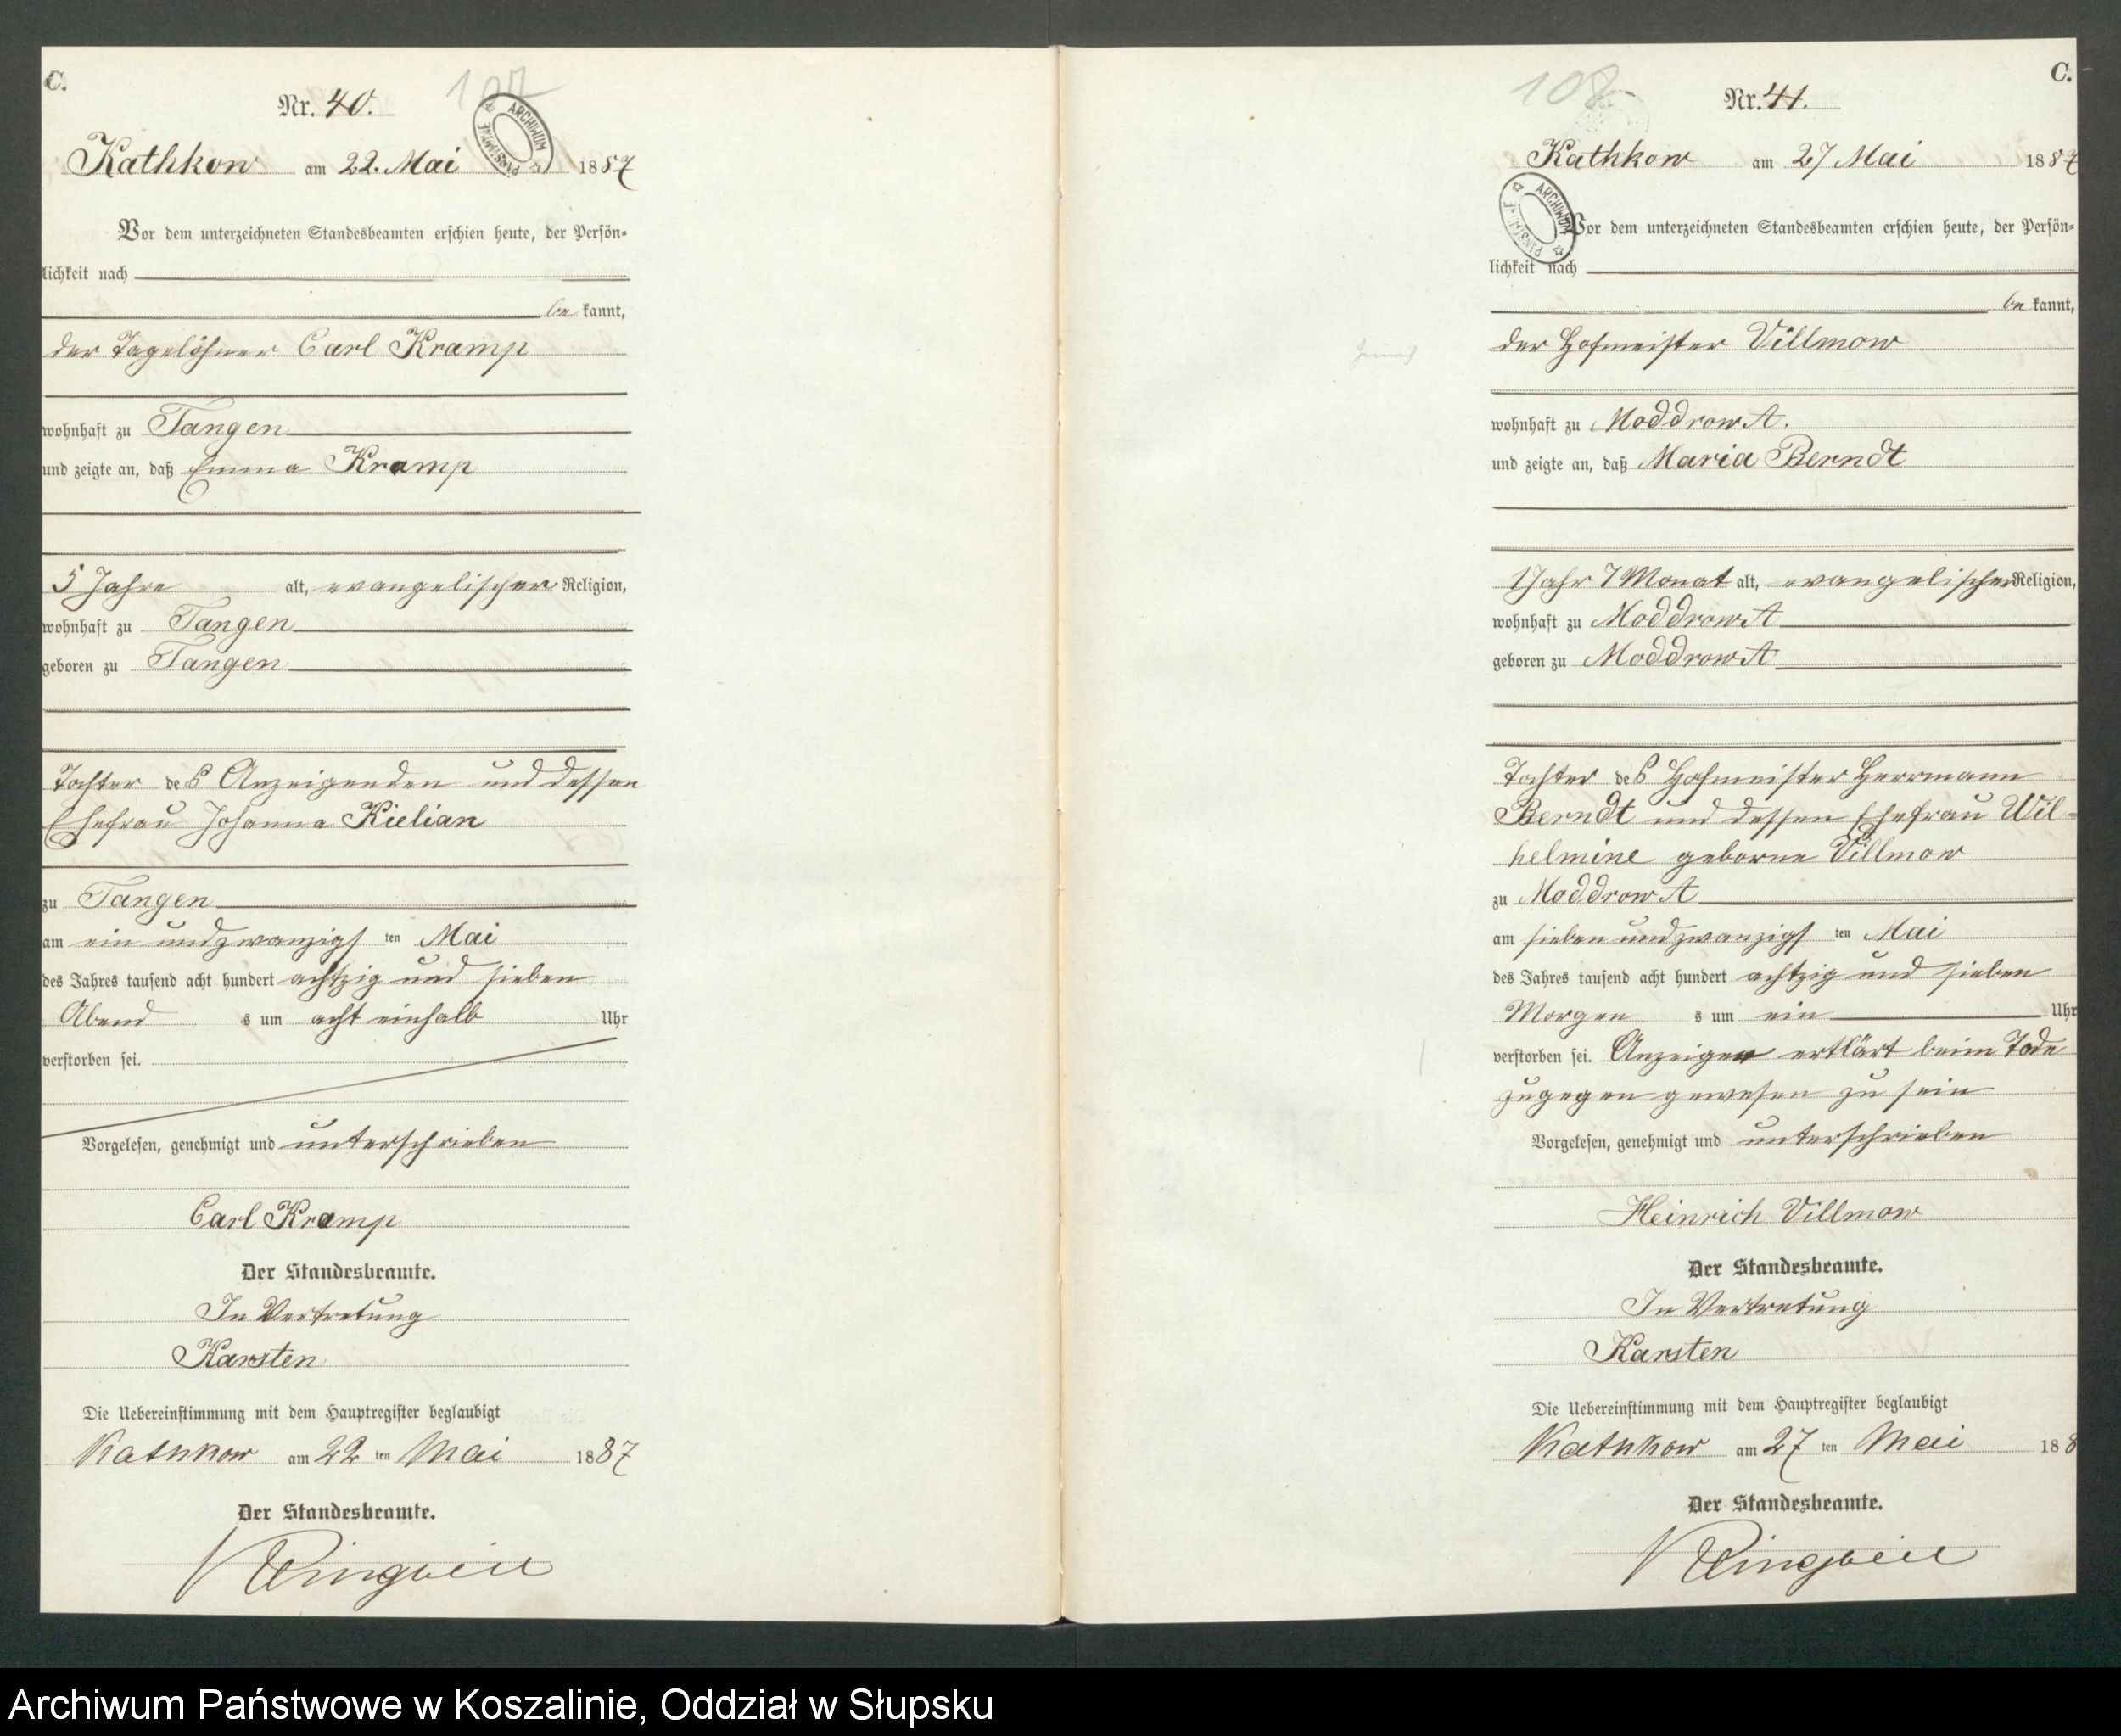 C.
107
Nr. 40.
ARCHIWUM PAŃSTWOWE
Kathkow am 22. Mai 1887
Vor dem unterzeichneten Standesbeamten erschien heute, der Persön-
lichkeit nach
be kannt,
der Tagelöhner Carl Kramp
wohnhaft zu Tangen
und zeigte an, daß Emma Kramp
5 Jahre alt, evangelischer Religion,
wohnhaft zu Tangen
geboren zu Tangen
Tochter des Anzeigenden und dessen
Ehefrau Johanna Kielian
zu Tangen
am ein und zwanzigsten Mai
des Jahres tausend acht hundert achtzig und sieben
Abend s um acht einhalb Uhr
verstorben sei.
Vorgelesen, genehmigt und unterschrieben
Carl Kramp
Der Standesbeamte.
In Vertretung
Karsten
Die Uebereinstimmung mit dem Hauptregister beglaubigt
Kathkow am 22 ten Mai 1887
Der Standesbeamte.
C.
108
Nr. 41.
Kathkow am 27 Mai 1887
ARCHIWUM PAŃSTWOWE
Vor dem unterzeichneten Standesbeamten erschien heute, der Persön-
lichkeit nach
be kannt,
der Hofmeister Villmow
wohnhaft zu Moddrow A.
und zeigte an, daß Maria Berndt
1 Jahr 7 Monat alt, evangelischer Religion,
wohnhaft zu Moddrow A
geboren zu Moddrow A
Tochter des Hofmeister Herrmann
Berndt und dessen Ehefrau Wil-
helmine geborne Villmow
zu Moddrow A
am sieben und zwanzigsten Mai
des Jahres tausend acht hundert achtzig und sieben
Morgen s um ein Uhr
verstorben sei. Anzeiger erklärt beim Tode
zugegen gewesen zu sein
Vorgelesen, genehmigt und unterschrieben
Heinrich Villmow
Der Standesbeamte.
In Vertretung
Karsten
Die Uebereinstimmung mit dem Hauptregister beglaubigt
Kathkow am 27 ten Mai 188
Der Standesbeamte.
Archiwum Państwowe w Koszalinie, Oddział w Słupsku